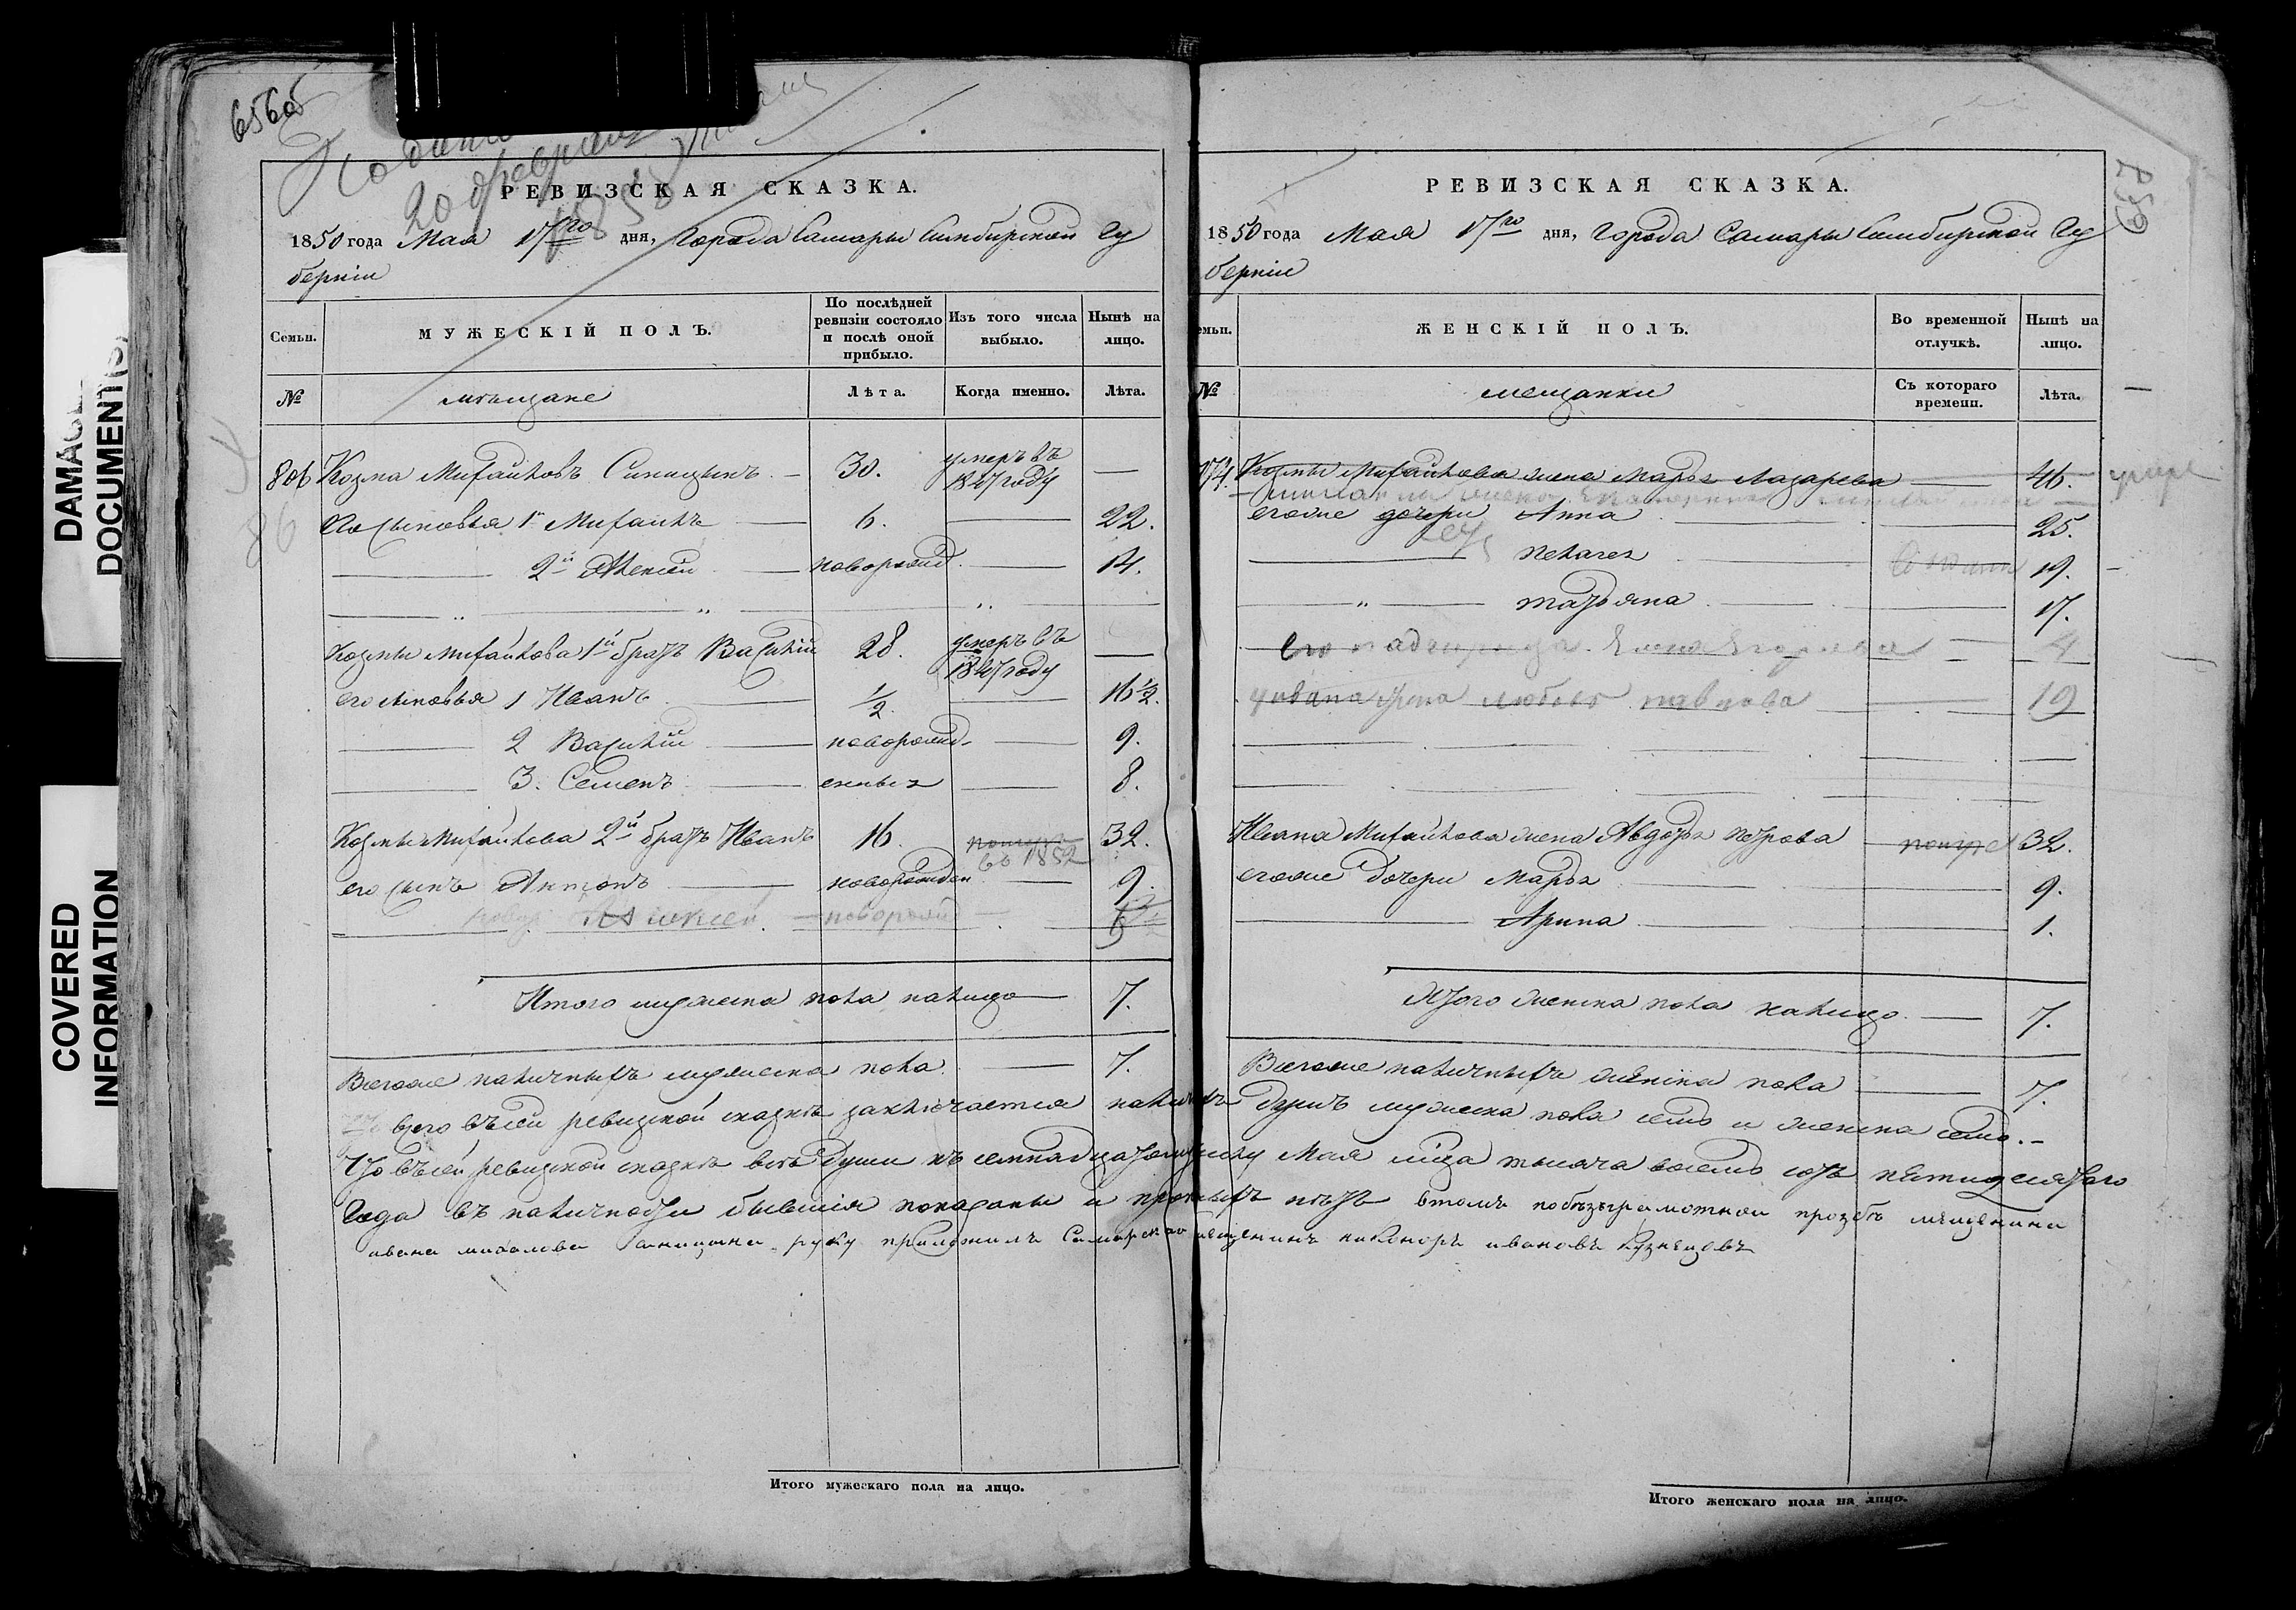 656об
Подана
20 февраля
1858
РЕВИЗСКАЯ СКАЗКА.
1850 года Мая 17го дня, Города Самары Симбирской Гу
берніи
Семьи.
МУЖЕСКІЙ ПОЛЪ.
По послѣдней ревизіи состояло и послѣ оной прибыло.
Изъ того числа выбыло.
Нынѣ на лицо.
№
мѣщане
Лѣта.
Когда именно.
Лѣта.
806 Козма Михайловъ Синицынъ 30. умеръ въ 1847 году —
86
Его сыновья 1й Михайла 6. 22.
2й Алексей новорожд. 14.
Козмы Михайлова 1й братъ Василій 28. умеръ въ 1847 году —
его сыновья 1 Иванъ 1/2 16 1/2.
2 Василій новорожд- 9.
3. Семенъ енныя 8.
Козмы Михайлова 2й братъ Иванъ 16. въ 1852 32.
его сынъ Антонъ новорожден 9.
Алексей новорожд
Итого мужеска пола налицо 7.
Всегоже наличныхъ мужеска пола 7.
РЕВИЗСКАЯ СКАЗКА.
1850 года Мая 17го дня, Города Самары Симбирской Гу
берніи
емьи.
ЖЕНСКІЙ ПОЛЪ.
Во временной отлучкѣ.
Нынѣ на лицо.
№
мещанки
Съ котораго времени.
Лѣта.
Козмы Михайлова жена Марья Лазарева 46. умре
егоже дочери Анна 25.
Пелагея 19.
татьяна 17.
Его падчерица Елена Егорова 4
Ивана жена любовь павлова 19
Ивана Михайлова жена Авдотья Петрова 32.
егоже дочери Марья 9.
Арина 1.
Итого женска пола налицо. 7.
Всегоже наличныхъ женска пола 7.
всего въ сей ревизкой сказке заключается наличныхъ душъ мужеска пола семь и женска семь.-
Что въ сей ревизкой сказке все души къ семнадцатому числу Мая мца тысяча восемь сотъ пятидесятого
Года въ наличности бывшія показаны и прописныхъ нетъ втомъ побезграмотной прозбѣ мещенина
ивана михалова синицина руку приложилъ Самарской мещенинъ никоноръ ивановъ Кузнецовъ
Итого мужескаго пола на лицо.
Итого женскаго пола на лицо.
DAMAGED DOCUMENT(S)
COVERED INFORMATION